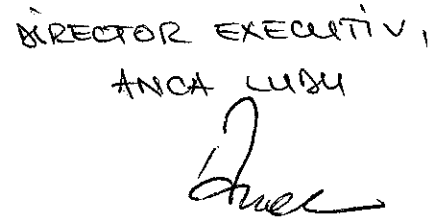 DIRECTOR EXECUTIV,
ANCA LUDU